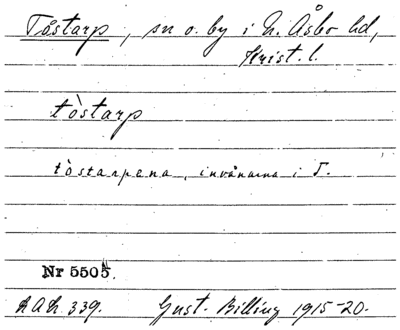 Tåstarp, sn o. by i N. Åsbo hd,
Krist. l.
tòstarp
tòstarpena, invånarna i T.
Nr 5505.
LAL 339. Gust. Billing 1915-20.